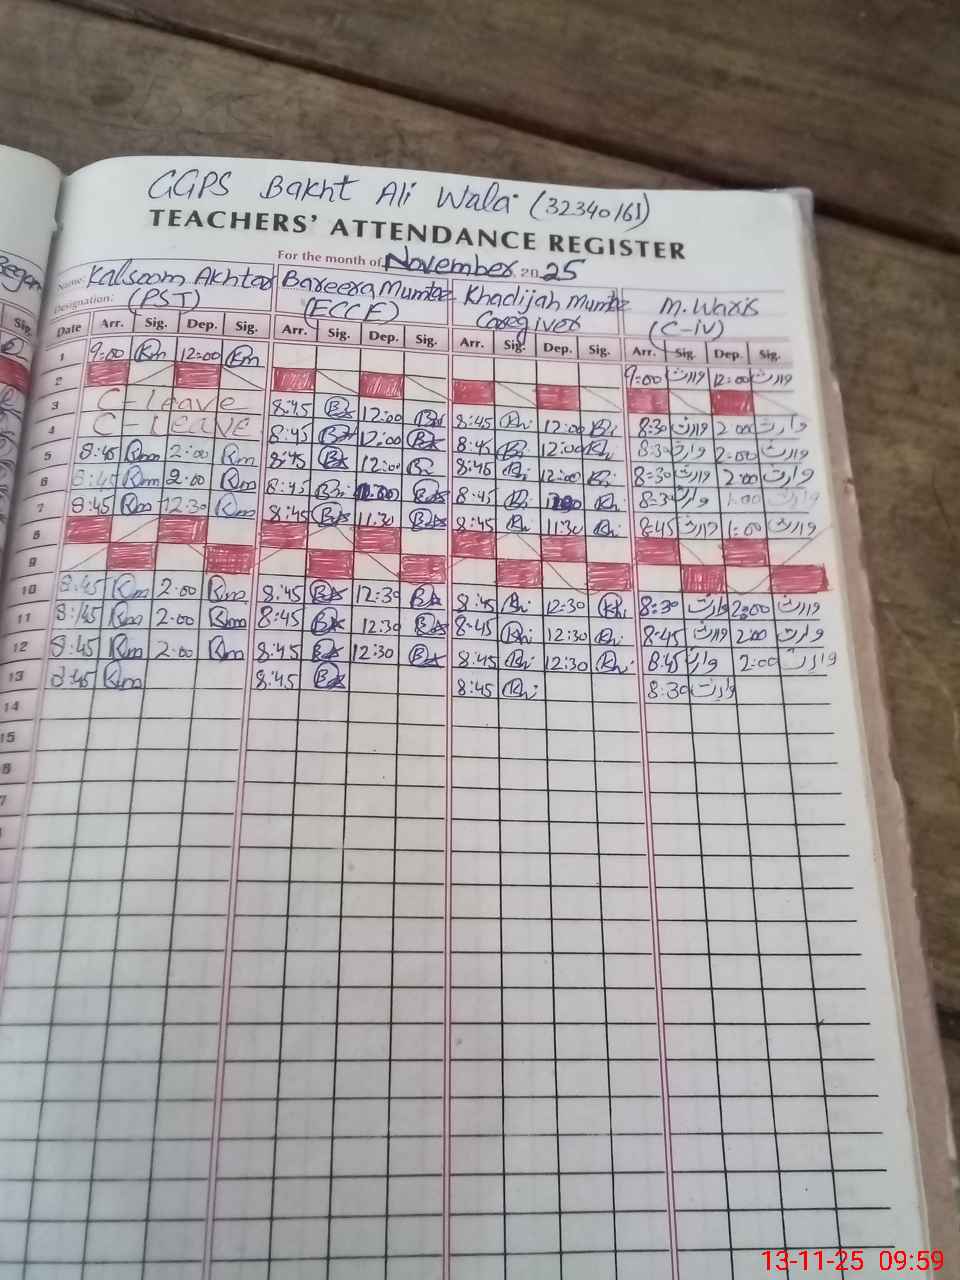 GGPS Bakht Ali Wala (32340161)
TEACHERS' ATTENDANCE REGISTER
For the month of November 2025
Name: Kalsoom Akhtar Bareera Mumtaz Khadijah Mumtaz M. Waris
Designation: (PST) (ECCE) Caregiver (C-iv)
Date Arr. Sig. Dep. Sig. Arr. Sig. Dep. Sig. Arr. Sig. Dep. Sig. Arr. Sig. Dep. Sig.
1 9:00 Km 12:00 Km 9:00 وارث 12:00 وارث
2
3 C-leave 8:45 12:00 8:45 Kh 12:00 Kh 8:30 وارث 2:00 وارث
4 C-Leave 8:45 12:00 8:45 Kh 12:00 Kh 8:30 وارث 2:00 وارث
5 8:45 Km 2:00 Km 8:45 12:00 8:45 Kh 12:00 Kh 8:30 وارث 2:00 وارث
6 8:45 Km 2:00 Km 8:45 8:45 Kh Kh 8:30 وارث 1:00 وارث
7 8:45 Km 12:30 Km 8:45 11:30 8:45 Kh 11:30 Kh 8:45 وارث 1:00 وارث
8
9
10 8:45 Km 2:00 Km 8:45 12:30 8:45 Kh 12:30 Kh 8:30 وارث 2:00 وارث
11 8:45 Km 2:00 Km 8:45 12:30 8:45 Kh 12:30 Kh 8:45 وارث 2:00 وارث
12 8:45 Km 2:00 Km 8:45 12:30 8:45 Kh 12:30 Kh 8:45 وارث 2:00 وارث
13 8:45 Km 8:45 8:45 Kh 8:30 وارث
14
15
13-11-25 09:59